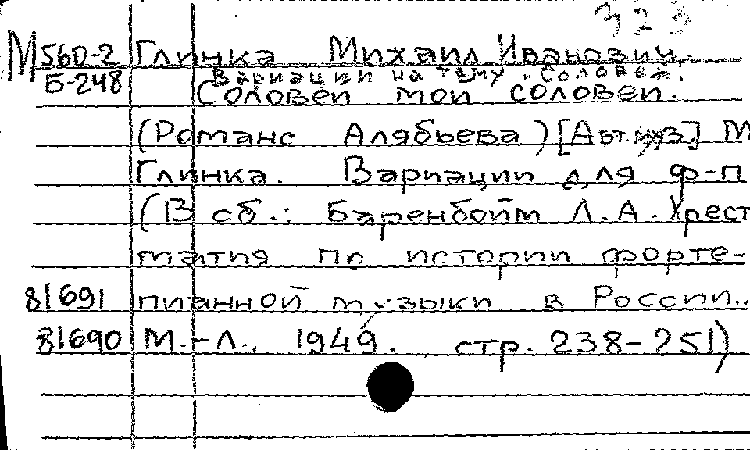 323
М 560-2 Глинка Михаил Иванович.
Б-248 Вариации на тему "Соловей".
Соловей мой соловей.
(Романс Алябьева) [Авт. муз.] М
Глинка. Вариации для ф-п
(В сб.: Баренбойм Л.А. Хрест
матия по истории форте-
81691 пианной музыки в России..
81690 М.-Л., 1949. стр. 238-251)